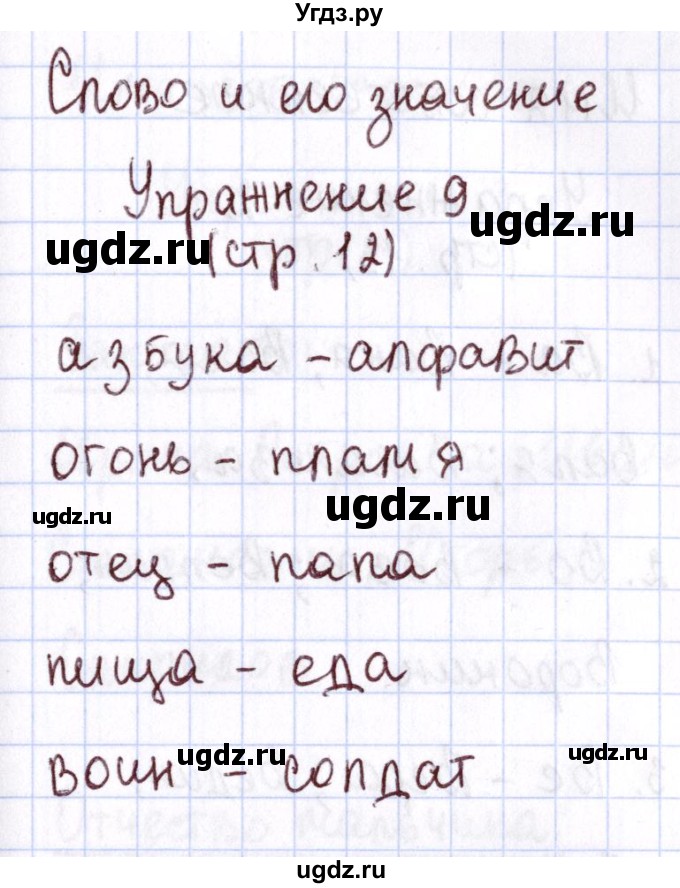 Угдз.ру
Слово и его значение
Упражнение 9
ugdz.ru
(стр. 12)
азбука - алфавит
огонь - пламя
ugdz.ru
ugdz.ru
отец - папа
пища - еда
ugdz.ru
ugdz.ru
воин - солдат
ugdz.ru